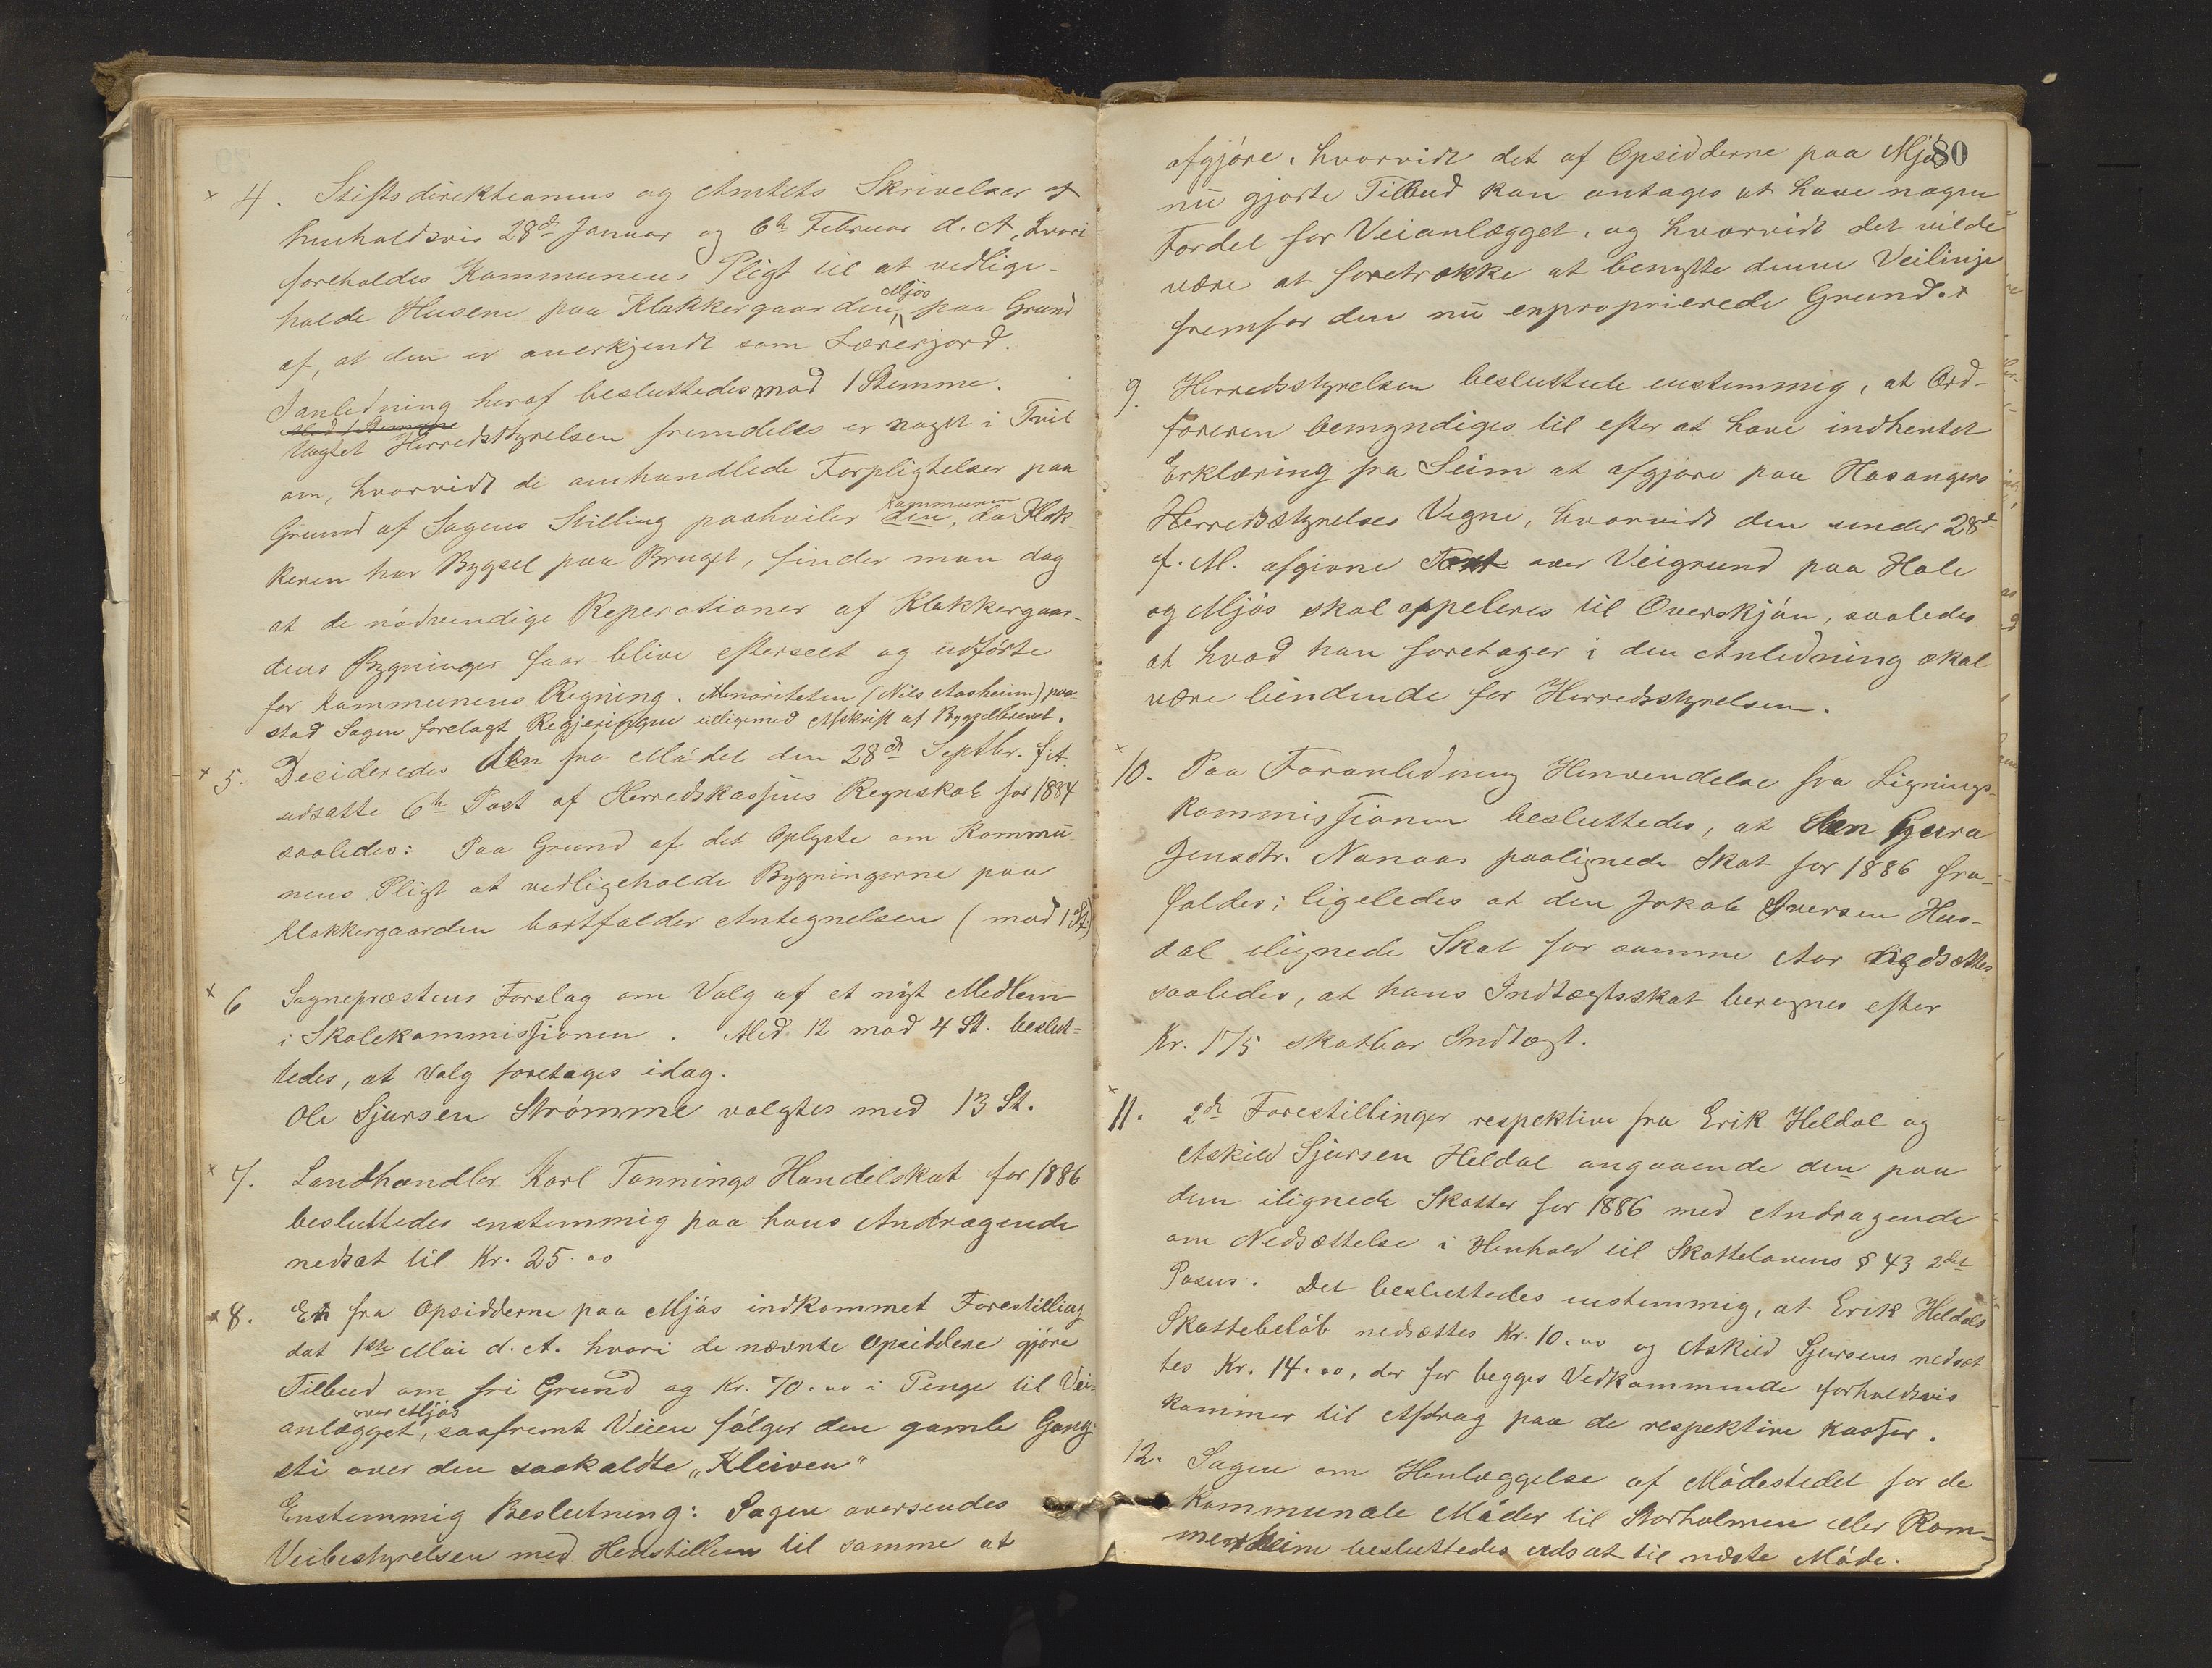 × 4. Stiftsdirektionens og Amtets Skrivelser af
henholdsvis 28de Januar og 6te Februar d. A., hvori
foreholdes Kommunens Pligt til at vedlige-
holde Husene paa Klokkergaarden Mjøs paa Grund
af, at den er anerkjendt som Lærerjord.
I anledning heraf besluttedes mod 1 Stemme.
Uagtet Herredsstyrelsen fremdeles er noget i Tvil
om, hvorvidt de omhandlede Forpligtelser paa
Grund af Sagens Stilling paahviler Kommunen, da Klok-
keren har Bygsel paa Bruget, finder man dog
at de nödvendige Reperationer af Klokkergaar-
dens Bygninger faar blive efterseet og udförte
for Kommunens Regning. Minoriteten (Nils Aasheim) paa-
stod Sagen forelagt Regjeringen tilligemed Afskrift af Bygselbrevet.
× 5. Decideredes den fra Mödet den 28de Septbr. f. A.
udsatte 6te Post af Herredskassens Regnskab for 1884
saaledes: Paa Grund af det Oplyste om Kommu-
nens Pligt at vedligeholde Bygningerne paa
Klokkergaarden bortfalder Antegnelsen (mod 1 St.)
× 6 Sognepræstens Forslag om Valg af et nyt Medlem
i Skolekommissionen. Med 12 mod 4 St. beslut-
tedes, at Valg foretages idag.
Ole Sjursen Strömme valgtes med 13 St.
× 7. Landhandler Karl Tonnings Handelskat for 1886
besluttedes enstemmig paa hans Andragende
nedsat til Kr. 25.00
× 8. En fra Opsidderne paa Mjös indkommet Forestilling
dat 1ste Mai d. A. hvori de nævnte Opsiddere gjöre
Tilbud om fri Grund og Kr. 70.00 i Penge til Vei-
anlægget over Mjös, saafremt Veien fölger den gamle Gang-
sti over den saakaldte „Kleiven"
Enstemmig Beslutning: Sagen oversendes
Veibestyrelsen med Henstillen til samme at
80
afgjöre, hvorvidt det af Opsidderne paa Mjös
nu gjorte Tilbud kan antages at have nogen
Fordel for Veianlægget, og hvorvidt det vilde
være at foretrække at benytte denne Veilinje
fremfor den nu exproprierede Grund.
9. Herredsstyrelsen besluttede enstemmig, at Ord-
föreren bemyndiges til efter at have indhentet
Erklæring fra Seim at afgjöre paa Hosangers
Herredsstyrelses Vegne, hvorvidt den under 28de
f. M. afgivne Taxt over Veigrund paa Hole
og Mjös skal appeleres til Overskjön, saaledes
at hvad han foretager i den Anledning skal
være bindende for Herredsstyrelsen.
× 10. Paa Foranledning Henvendelse fra Lignings-
kommissionen besluttedes, at den Gjura
Jensdtr. Nanaas paalignede Skat for 1886 fra-
faldes; ligeledes at den Jakob Iversen Hus-
dal ilignede Skat for samme Aar nedsættes
saaledes, at hans Indtægtsskat beregnes efter
Kr. 175 skatbar Indtægt.
× 11. 2de Forestillinger respektive fra Erik Heldal og
Askild Sjursen Heldal angaaende den paa
dem ilignede Skatter for 1886 med Andragende
om Nedsættelse i Henhold til Skattelovens § 43 2det
Pasus. Det besluttedes enstemmig, at Erik Heldals
Skattebelöb nedsættes Kr. 10.00 og Askild Sjursens nedsæt-
tes Kr. 14.00, der for begges Vedkommende forholdsvis
kommer til Afdrag paa de respektive Kasser.
12. Sagen om Henlæggelse af Mödestedet for de
Kommunale Möder til Storholmen eller Rom-
merheim besluttedes udsat til næste Möde.